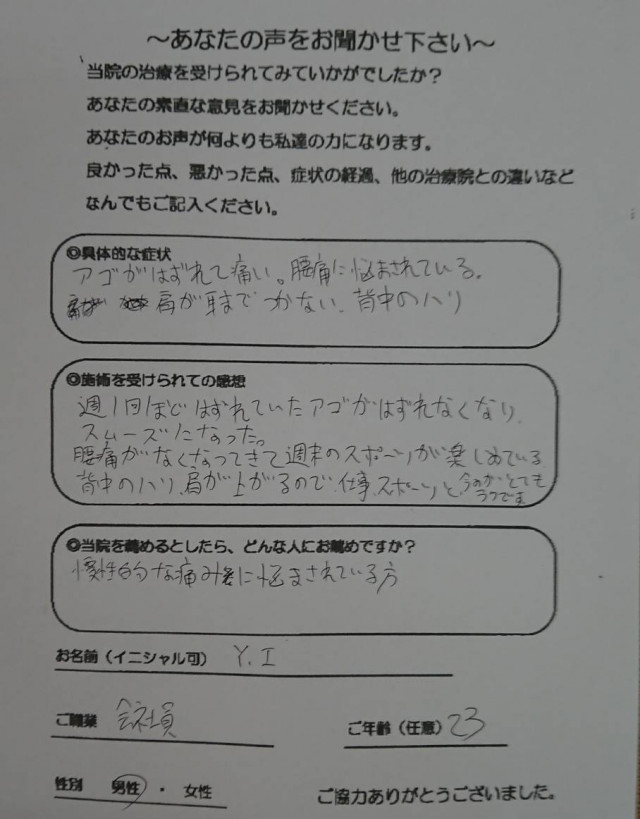 ～あなたの声をお聞かせ下さい～
当院の治療を受けられてみていかがでしたか？
あなたの素直な意見をお聞かせください。
あなたのお声が何よりも私達の力になります。
良かった点、悪かった点、症状の経過、他の治療院との違いなど
なんでもご記入ください。
◎具体的な症状
アゴがはずれて痛い。腰痛に悩まされている。
肩が耳までつかない、背中のハリ
◎施術を受けられての感想
週1回ほどはずれていたアゴがはずれなくなり、
スムーズになった。
腰痛がなくなってきて週末のスポーツが楽しめている
背中のハリ、肩が上がるので、仕事、スポーツと
とても
ラクです
◎当院を薦めるとしたら、どんな人にお薦めですか？
慢性的な痛みに悩まされている方
お名前（イニシャル可） Y.I
ご職業 会社員
ご年齢（任意） 23
性別 男性・女性
ご協力ありがとうございました。